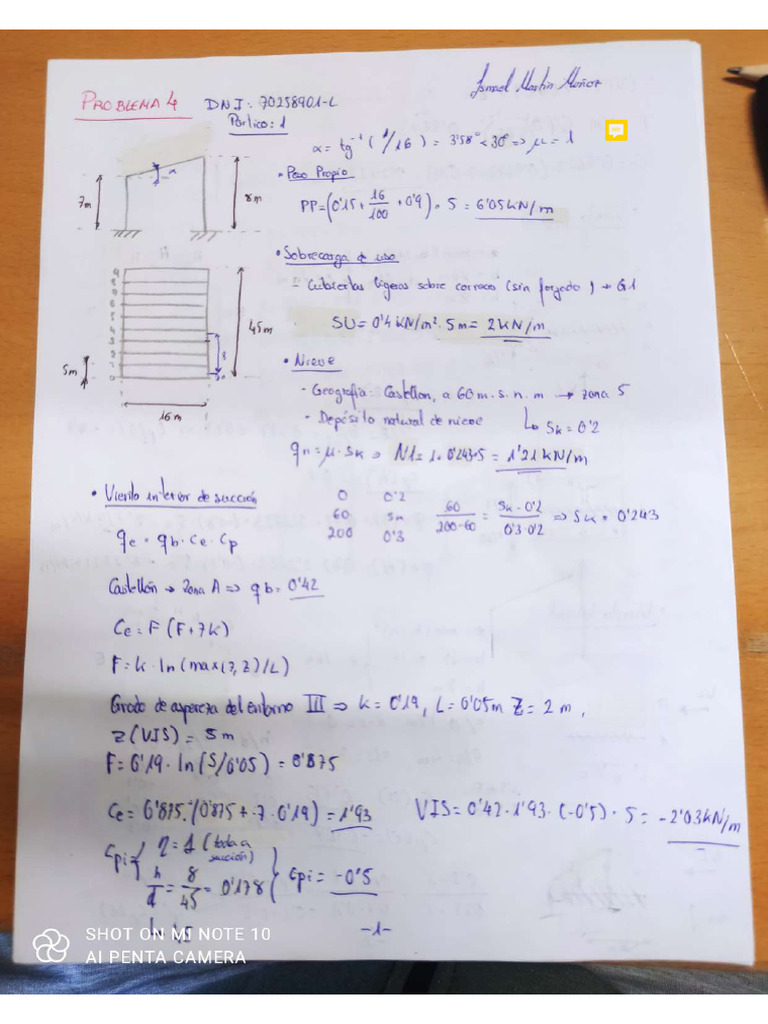 Ismael Martín Muñoz
PROBLEMA 4 DNI: 70258901-L
Pórtico: 1
α = tg⁻¹ (1/16) = 3'58° < 30° ⇒ μ = 1
• Peso Propio
PP = (0'15 + 16/100 + 0'9) · 5 = 6'05 kN/m
7m
α
8m
• Sobrecarga de uso
- Cubiertas ligeras sobre correas (sin forjado) → G1
SU = 0'4 kN/m² · 5m = 2 kN/m
45m
5m
16m
• Nieve
- Geografía: Castellón, a 60 m.s.n.m → zona 5
- Depósito natural de nieve
↳ Sk = 0'2
qn = μ · Sk ⇒ N1 = 1 · 0'243 · 5 = 1'21 kN/m
• Viento interior de succión
0 0'2
60 Sk
200 0'3
60/200-60 = Sk - 0'2/0'3·0'2 ⇒ Sk = 0'243
qe = qb · Ce · Cp
Castellón → Zona A ⇒ qb = 0'42
Ce = F (F + 7k)
F = k · ln (max (z, Z) / L)
Grado de aspereza del entorno III ⇒ k = 0'19, L = 0'05m Z = 2 m,
z (VIS) = 5m
F = 0'19 · ln (5/0'05) = 0'875
Ce = 0'875 · (0'875 + 7 · 0'19) = 1'93
VIS = 0'42 · 1'93 · (-0'5) · 5 = -2'03 kN/m
Cpi { η = 1 (toda a succión)
h/d = 8/45 = 0'178 } Cpi = -0'5
-1-
SHOT ON MI NOTE 10
AI PENTA CAMERA